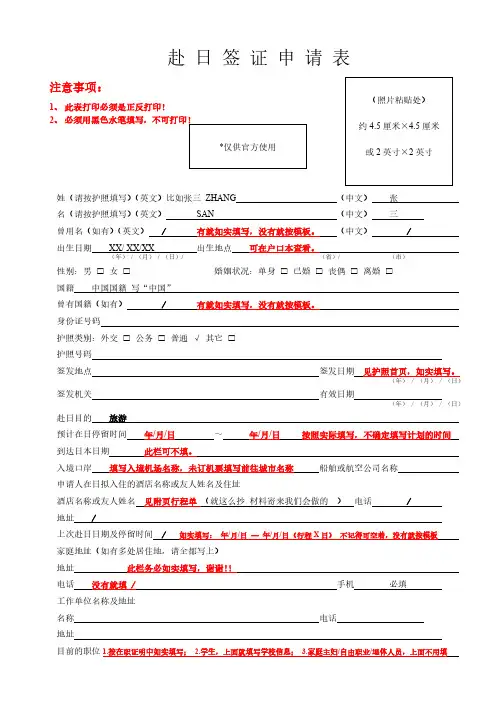 赴 日 签 证 申 请 表
注意事项：
1、 此表打印必须是正反打印！
2、 必须用黑色水笔填写，不可打印！
（照片粘贴处）
约 4.5 厘米×4.5 厘米
或 2 英寸×2 英寸
*仅供官方使用
姓（请按护照填写）（英文）比如张三 ZHANG （中文） 张
名（请按护照填写）（英文） SAN （中文） 三
曾用名（如有）（英文） / 有就如实填写，没有就按模板。 （中文） /
出生日期 XX/ XX/XX 出生地点 可在户口本查看。
（年） / （月） / （日）/ （省）/ （市）
性别：男 □ 女 □ 婚姻状况：单身 □ 已婚 □ 丧偶 □ 离婚 □
国籍 中国国籍 写“中国”
曾有国籍（如有） / 有就如实填写，没有就按模板。
身份证号码
护照类别：外交 □ 公务 □ 普通 √ 其它 □
护照号码
签发地点 签发日期 见护照首页，如实填写。
（年） / （月） / （日）
签发机关 有效日期
（年） / （月） / （日）
赴日目的 旅游
预计在日停留时间 年/月/日 ～ 年/月/日 按照实际填写，不确定填写计划的时间
到达日本日期 此栏可不填。
入境口岸 填写入境机场名称，未订机票填写前往城市名称 船舶或航空公司名称
申请人在日拟入住的酒店名称或友人姓名及住址
酒店名称或友人姓名 见附页行程单 （就这么抄 材料寄来我们会做的 ） 电话 /
地址 /
上次赴日日期及停留时间 / 如实填写： 年/月/日 — 年/月/日（行程 X 日） 不记得可空着，没有就按模板
家庭地址（如有多处居住地，请全部写上）
地址 此栏务必如实填写，谢谢！！
电话 没有就填 / 手机 必填
工作单位名称及地址
名称 电话
地址
目前的职位 1.按在职证明中如实填写； 2.学生，上面就填写学校信息； 3.家庭主妇/自由职业/退休人员，上面不用填